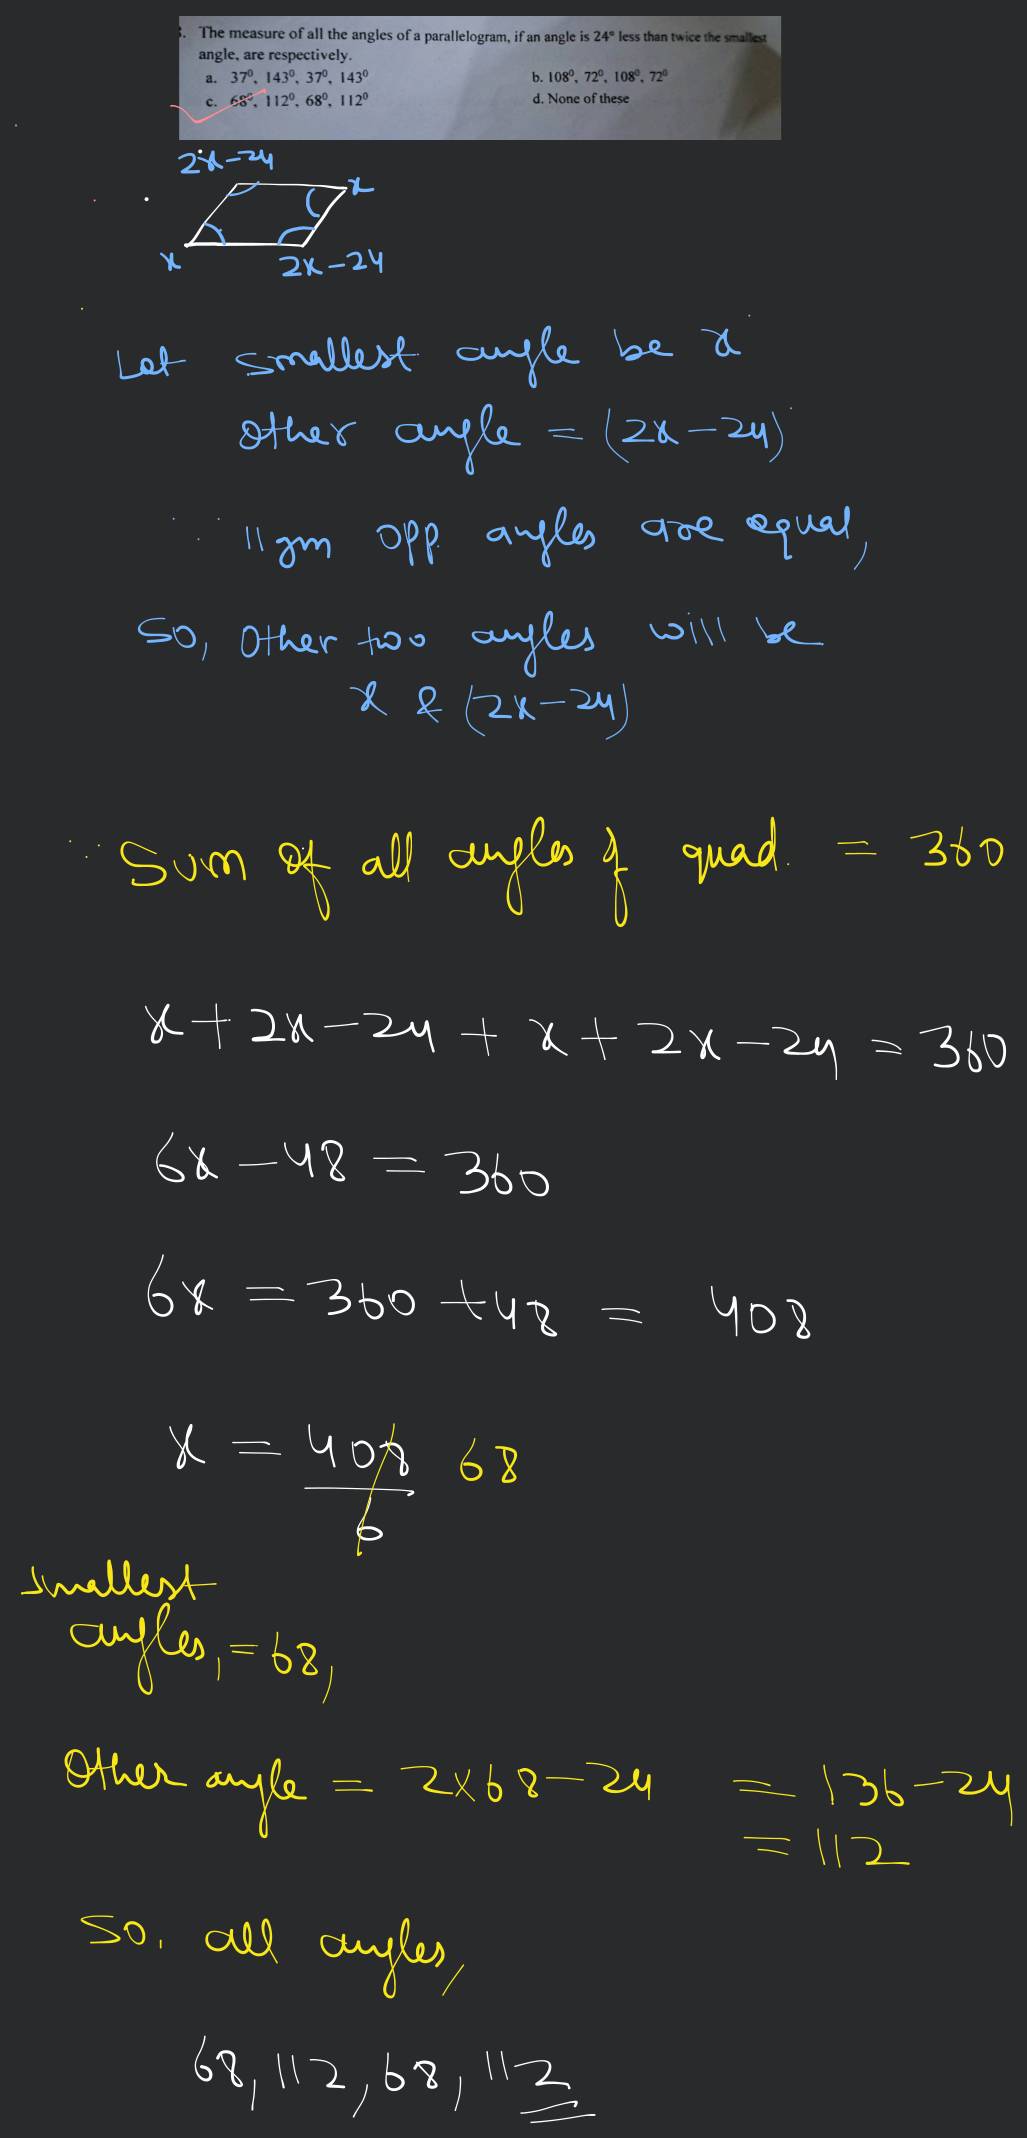 . The measure of all the angles of a parallelogram, if an angle is 24° less than twice the smallest
angle, are respectively.
a. 37⁰, 143⁰, 37⁰, 143⁰ b. 108⁰, 72⁰, 108⁰, 72⁰
c. 68⁰, 112⁰, 68⁰, 112⁰ d. None of these
2x-24
x
x
2x-24
Let smallest angle be x
other angle = (2x-24)
∵ ||gm opp. angles are equal,
So, Other two angles will be
x & (2x-24)
∵ Sum of all angles of quad. = 360
x + 2x - 24 + x + 2x - 24 = 360
6x - 48 = 360
6x = 360 + 48 = 408
x = 408/6 68
smallest
angles, = 68,
Other angle = 2x68-24 = 136-24
= 112
So, all angles,
68, 112, 68, 112